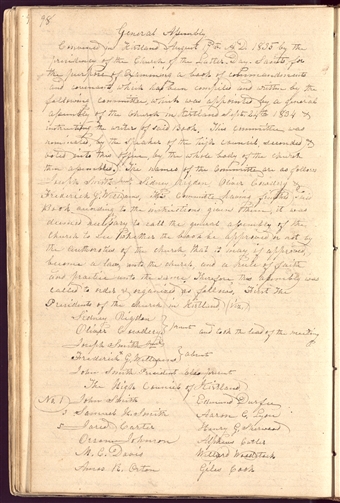 98
General Assembly
Convened in Kirtland August 17th A.D. 1835 by the
Presidency of the Church of the Latter Day Saints, for
the purpose of examining a book of commandments
and covenants which has been compiled and written by the
following committee, which was appointed by a general
assembly of the Church in Kirtland Sept 24th 1834 &
instructing the writer of said Book. This committee was
nominated by the Speaker of the high council, seconded &
voted into this office, by the whole body of the Church
then assembled. The names of the Committee are as follows
Joseph Smith Jr Sidney Rigdon Oliver Cowdery &
Frederick G Williams, This Committee having finished said
Book according to the instructions given them, it was
deemed necessary to call the general assembly of the
church to see whether the book be approved or not by
the authorities of the church that it may if approved
become a law unto the church and a rule of faith
and practice unto the same. Therefore this assembly was
called to order & organized as follows. First the
Presidents of the Church in Kirtland (viz)
Sidney Rigdon
Oliver Cowdery present and took the lead of the meeting
Joseph Smith Jr
Frederick G Williams absent
John Smith President
The High Council of Kirtland
No 1 John Smith
3 Samuel H Smith
5 Jared Carter
Orson Johnson
M. C. Davis
Amos R. Orton
Edmund Durfee
Aaron C. Lyon
Henry G Sherwood
Alpheus Cutler
Willard Woodstock
Giles Cook